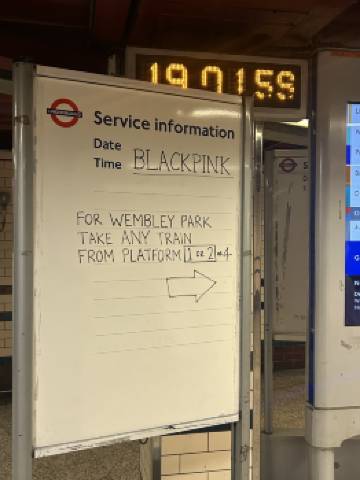 19:01:59
Service information
Date
Time BLACKPINK
FOR WEMBLEY PARK
TAKE ANY TRAIN
FROM PLATFORM 1 OR 2 →4